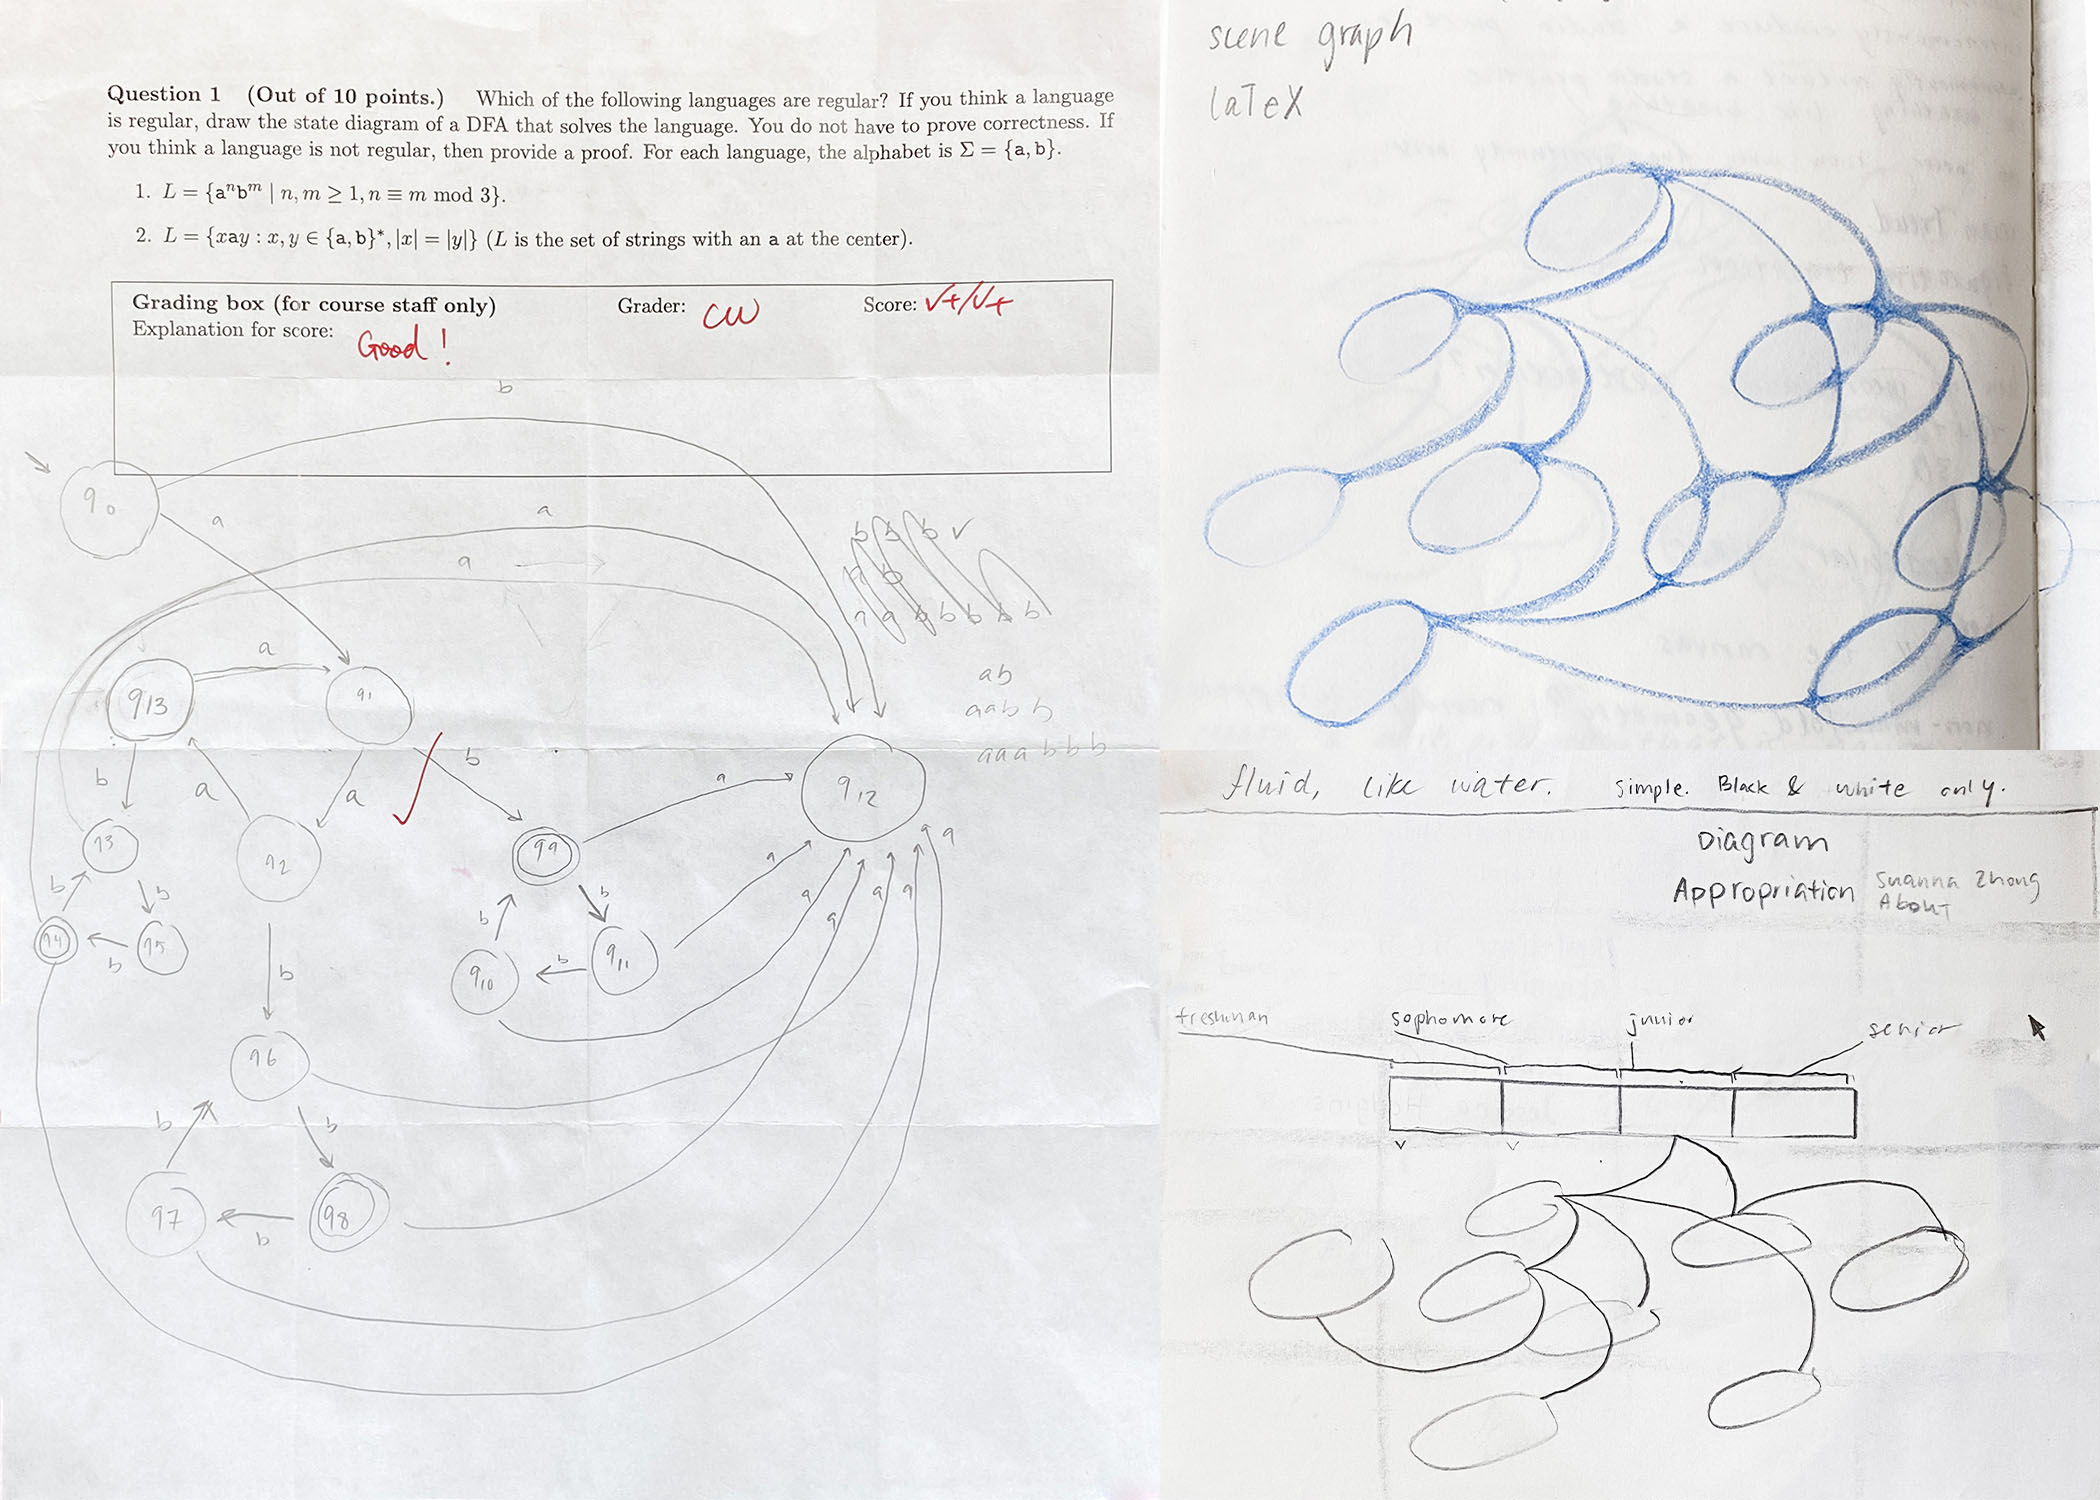 Question 1 (Out of 10 points.) Which of the following languages are regular? If you think a language
is regular, draw the state diagram of a DFA that solves the language. You do not have to prove correctness. If
you think a language is not regular, then provide a proof. For each language, the alphabet is Σ = {a, b}.
1. L = {aⁿbᵐ | n, m ≥ 1, n ≡ m mod 3}.
2. L = {xay : x, y ∈ {a, b}*, |x| = |y|} (L is the set of strings with an a at the center).
Grading box (for course staff only) Grader: CW Score: √+/√+
Explanation for score: Good!
b
q0
a
a
a
b b b ✓
b b b b
ab
aabb
aaabbb
a
q13
q1
b
a
a
b
a
q12
q3
q2
q9
b
b
b
b
q4
b
q5
b
q10
b
q11
a
a
a
a
a
a
q6
b
b
q7
b
q8
scene graph
LaTeX
fluid, like water. simple. Black & white only.
Diagram
Appropriation
Suanna Zhong
About
freshman
sophomore
junior
senior